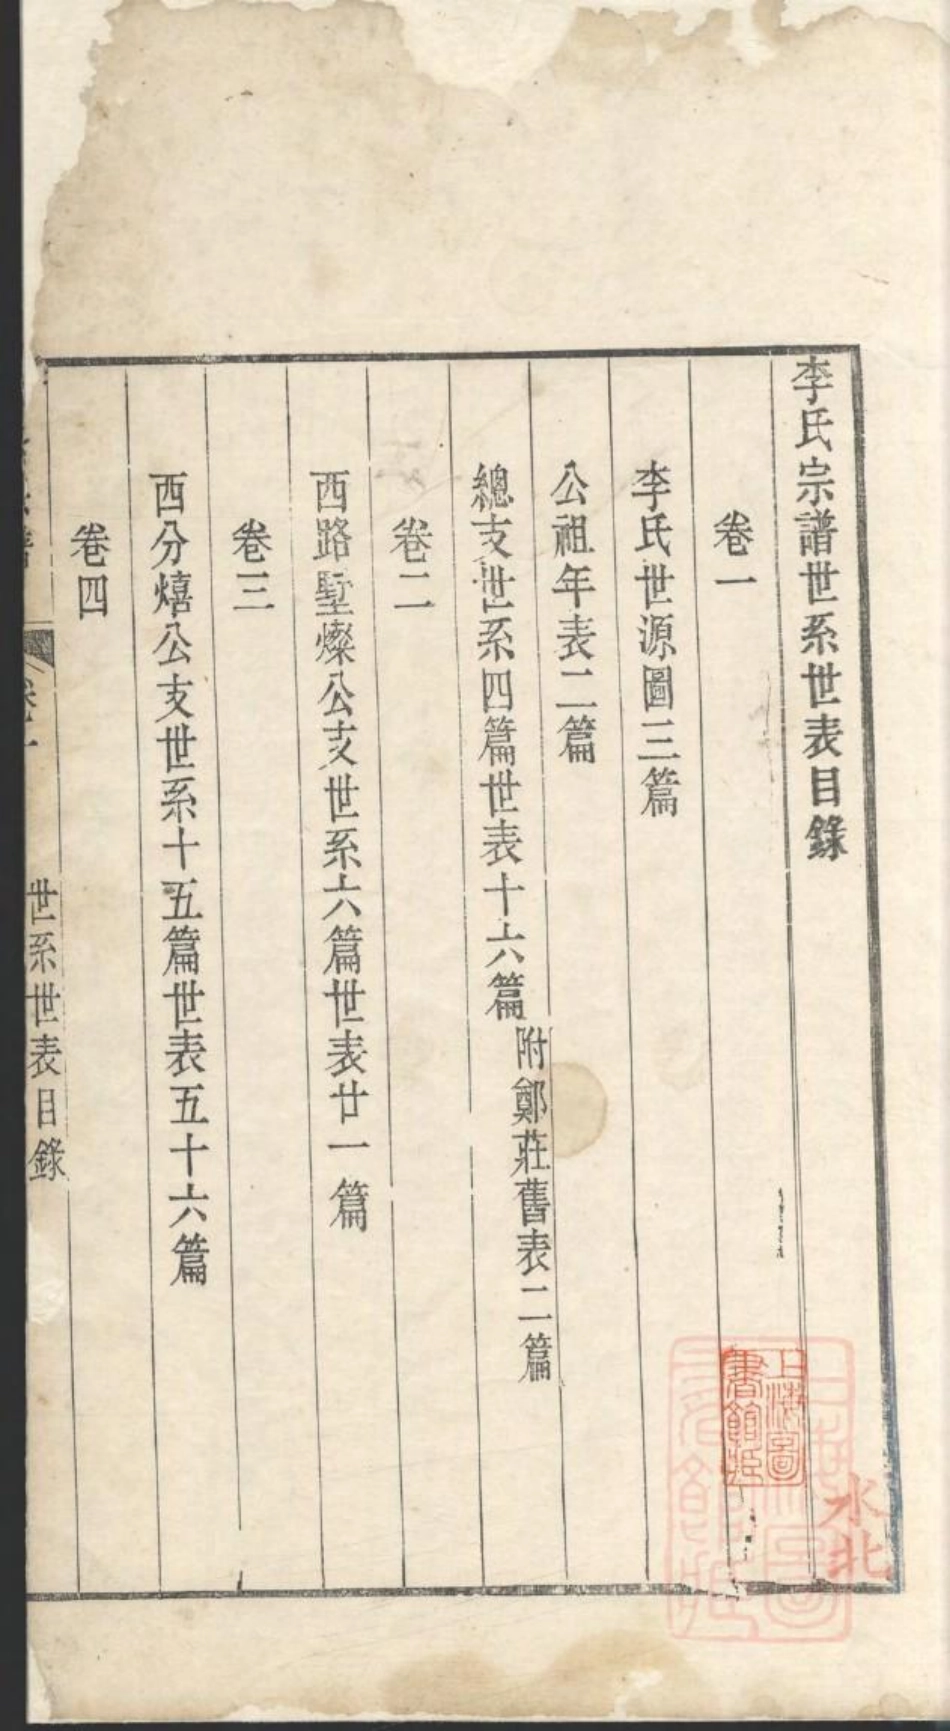 李氏宗譜世系世表目錄
卷一
李氏世源圖三篇
公祖年表二篇
總支世系四篇世表十六篇
附鄭莊舊表二篇
卷二
西路墅燦公支世系六篇世表廿一篇
卷三
西分熺公支世系十五篇世表五十六篇
卷四
世系世表目錄
水北
上海圖
書館藏